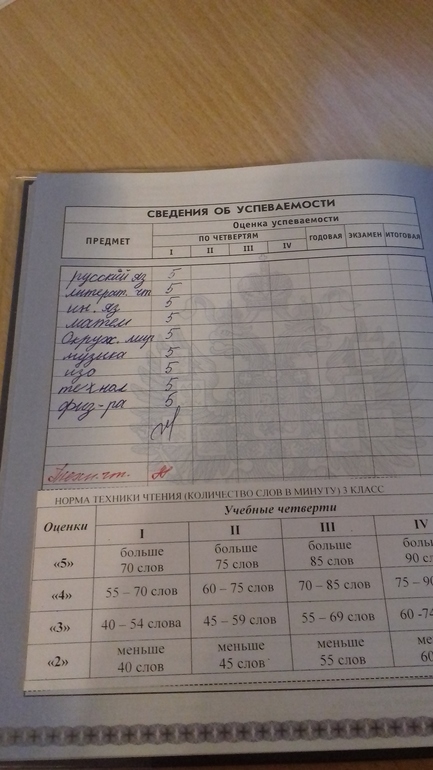 СВЕДЕНИЯ ОБ УСПЕВАЕМОСТИ
ПРЕДМЕТ Оценка успеваемости
ПО ЧЕТВЕРТЯМ ГОДОВАЯ ЭКЗАМЕН ИТОГОВАЯ
I II III IV
русский яз 5
литерат. чт 5
ин. яз 5
матем 5
Окруж. мир 5
музыка 5
изо 5
технол 5
физ-ра 5
НОРМА ТЕХНИКИ ЧТЕНИЯ (КОЛИЧЕСТВО СЛОВ В МИНУТУ) 3 КЛАСС
Оценки Учебные четверти
I II III IV
«5» больше 70 слов больше 75 слов больше 85 слов 90
«4» 55 – 70 слов 60 – 75 слов 70 – 85 слов 75 – 90
«3» 40 – 54 слова 45 – 59 слов 55 – 69 слов 60 -74
«2» меньше 40 слов меньше 45 слов меньше 55 слов 60